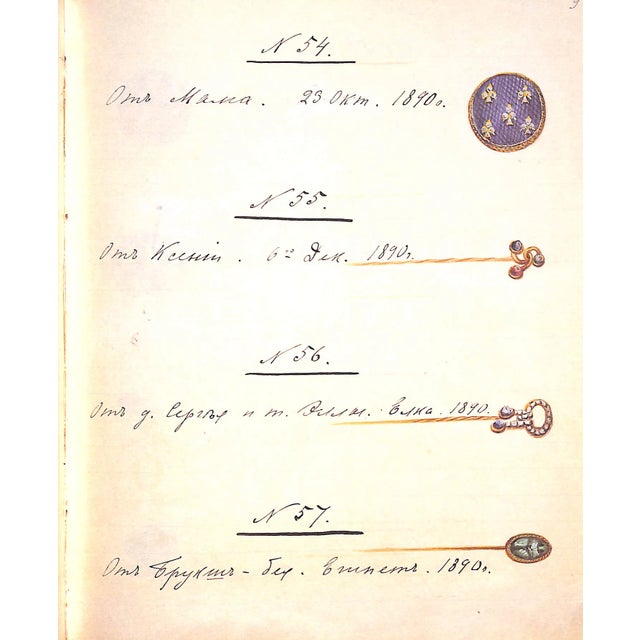 N 54.
Отъ Мама. 23 Окт. 1890г.
N 55.
Отъ Ксеніи. 6го Дек. 1890г.
N 56.
Отъ д. Сергѣя и т. Эллы. Елка. 1890.
N 57.
Отъ Брукшъ-бея. Египетъ. 1890г.